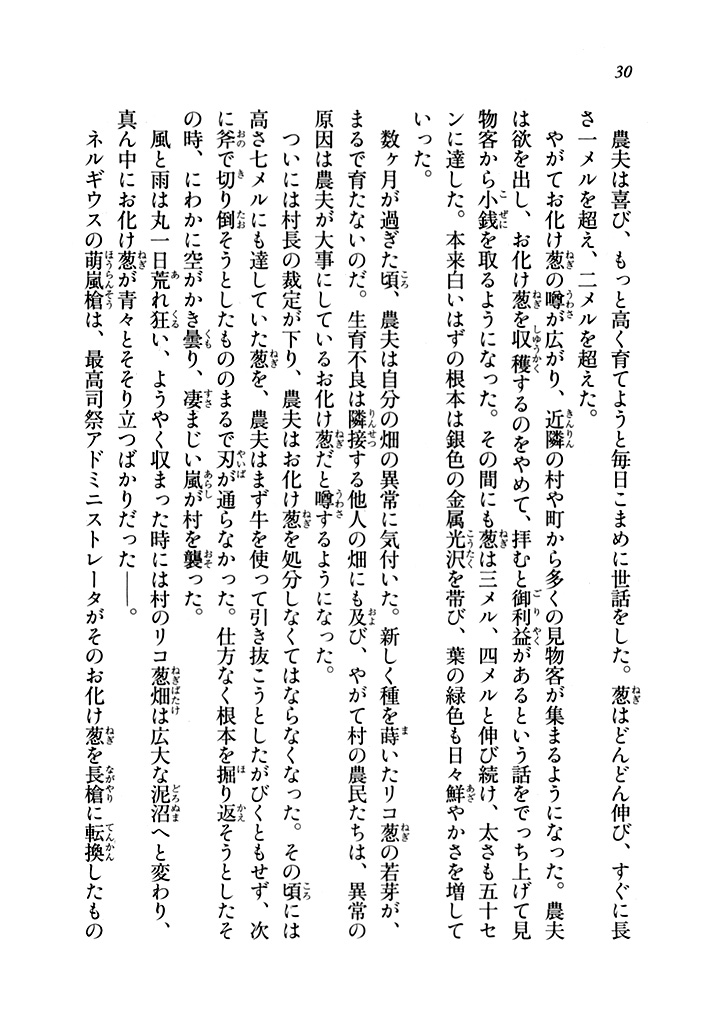 30
農夫は喜び、もっと高く育てようと毎日こまめに世話をした。葱はどんどん伸び、すぐに長
さ一メルを超え、二メルを超えた。
やがてお化け葱の噂が広がり、近隣の村や町から多くの見物客が集まるようになった。農夫
は欲を出し、お化け葱を収穫するのをやめて、拝むと御利益があるという話をでっち上げて見
物客から小銭を取るようになった。その間にも葱は三メル、四メルと伸び続け、太さも五十セ
ンに達した。本来白いはずの根本は銀色の金属光沢を帯び、葉の緑色も日々鮮やかさを増して
いった。
数ヶ月が過ぎた頃、農夫は自分の畑の異常に気付いた。新しく種を蒔いたリコ葱の若芽が、
まるで育たないのだ。生育不良は隣接する他人の畑にも及び、やがて村の農民たちは、異常の
原因は農夫が大事にしているお化け葱だと噂するようになった。
ついには村長の裁定が下り、農夫はお化け葱を処分しなくてはならなくなった。その頃には
高さ七メルにも達していた葱を、農夫はまず牛を使って引き抜こうとしたがびくともせず、次
に斧で切り倒そうとしたもののまるで刃が通らなかった。仕方なく根本を掘り返そうとしたそ
の時、にわかに空がかき曇り、凄まじい嵐が村を襲った。
風と雨は丸一日荒れ狂い、ようやく収まった時には村のリコ葱畑は広大な泥沼へと変わり、
真ん中にお化け葱が青々とそそり立つばかりだった――。
ネルギウスの萌嵐槍は、最高司祭アドミニストレータがそのお化け葱を長槍に転換したもの